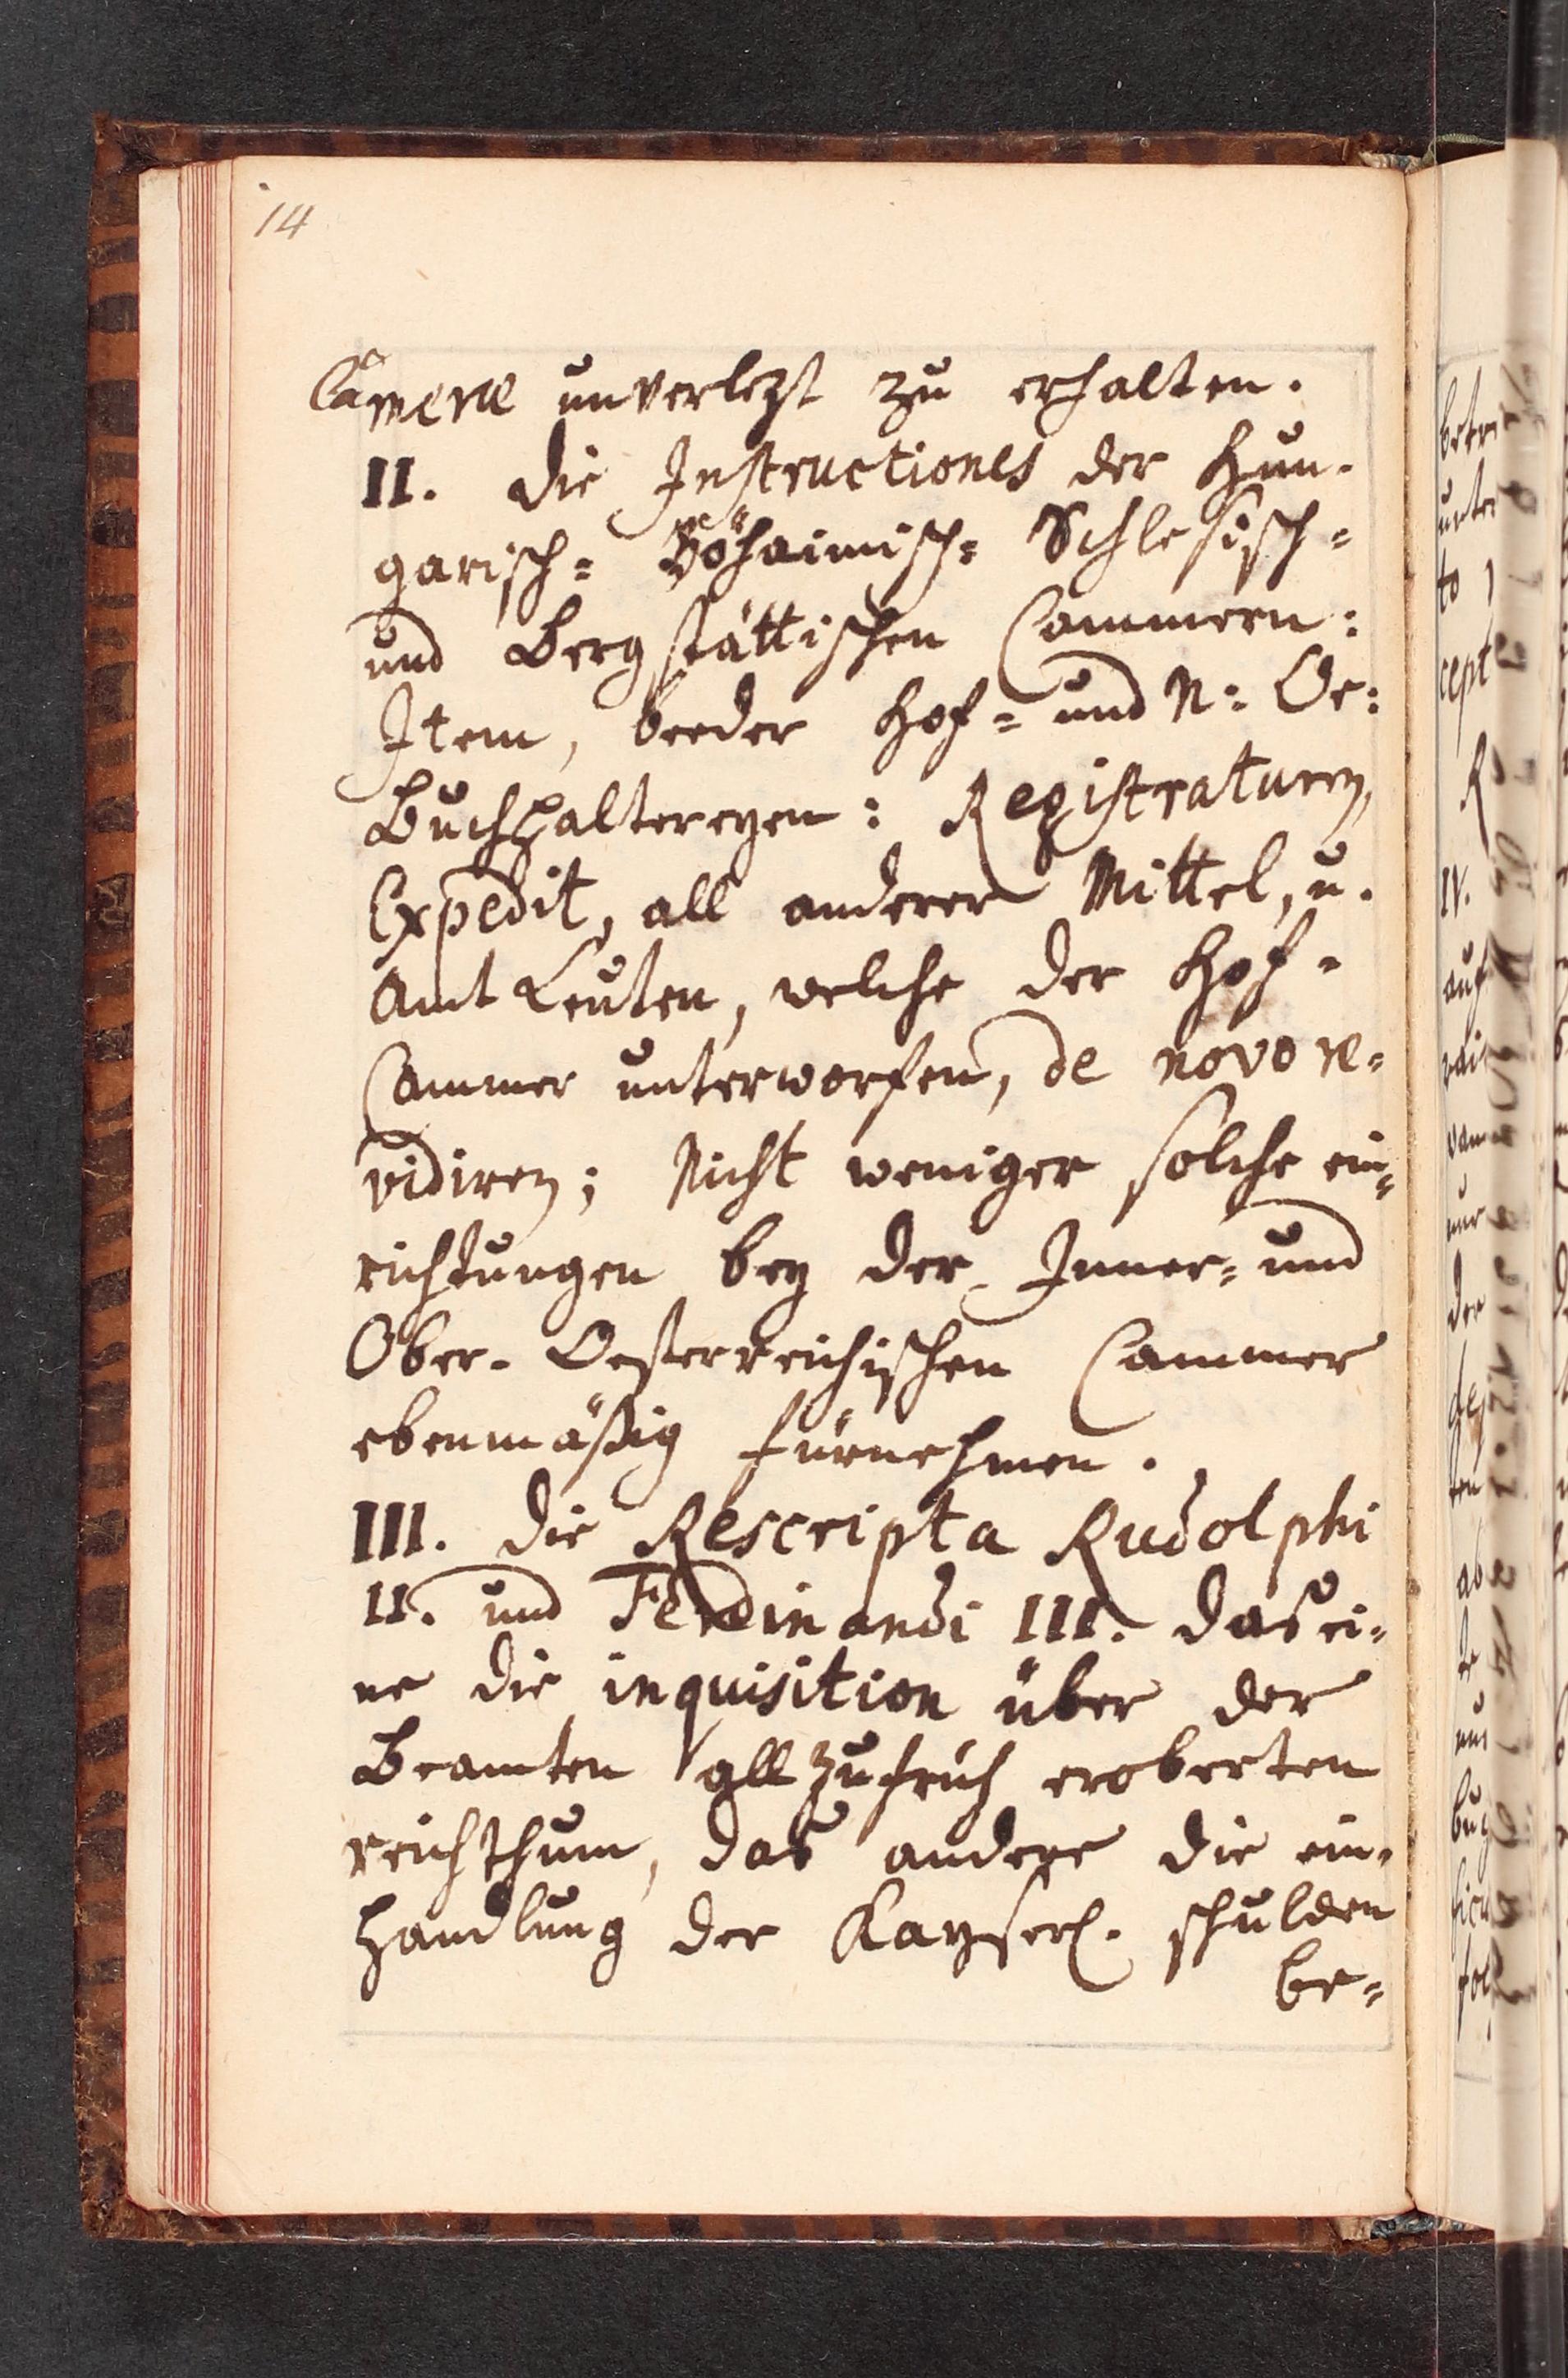 14
Camerae unverlezt zu erhalten.
II. Die Instructiones der Hun-
garisch= Böhaimisch= Schlesisch=
und Bergstättischen Cammern:
Item, beeder Hof= und N: Oe:
Buchhaltereyen: Registraturen,
Expedit, all anderer Mittel, u.
Amt Leuten, welche der Hof-
Cammer unterworfen, de novo re=
vidiren; Nicht weniger solche ein=
richtungen bey der Inner= und
Ober- Oesterreichischen Cammer
ebenmäßig fürnehmen.
III. Die Rescripta Rudolphi
II. und Ferdinandi III. das ei=
ne die inquisition über der
Beamten allzufrüh eroberten
reichthum, das andere die ein-
handlung der Kayserl. schulden
be=